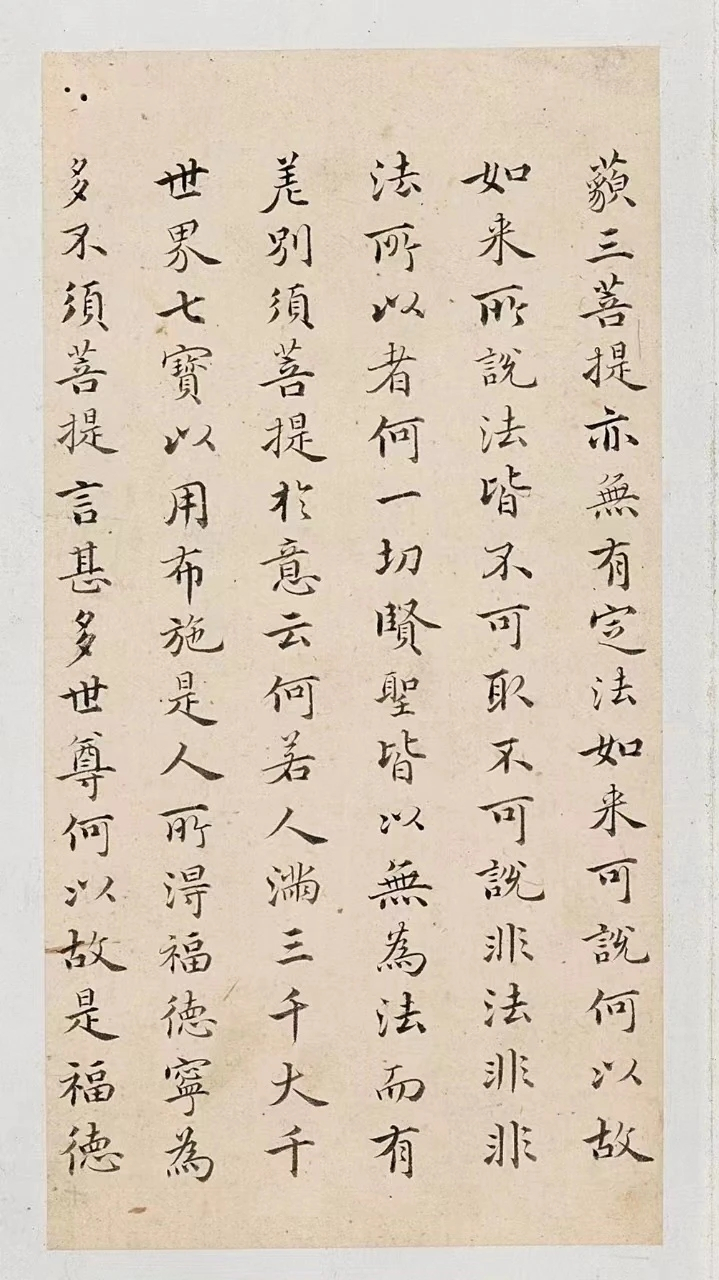 藐三菩提亦無有定法如来可說何以故
如来所說法皆不可取不可說非法非非
法所以者何一切賢聖皆以無為法而有
差別須菩提於意云何若人滿三千大千
世界七寶以用布施是人所得福德寧為
多不須菩提言甚多世尊何以故是福德